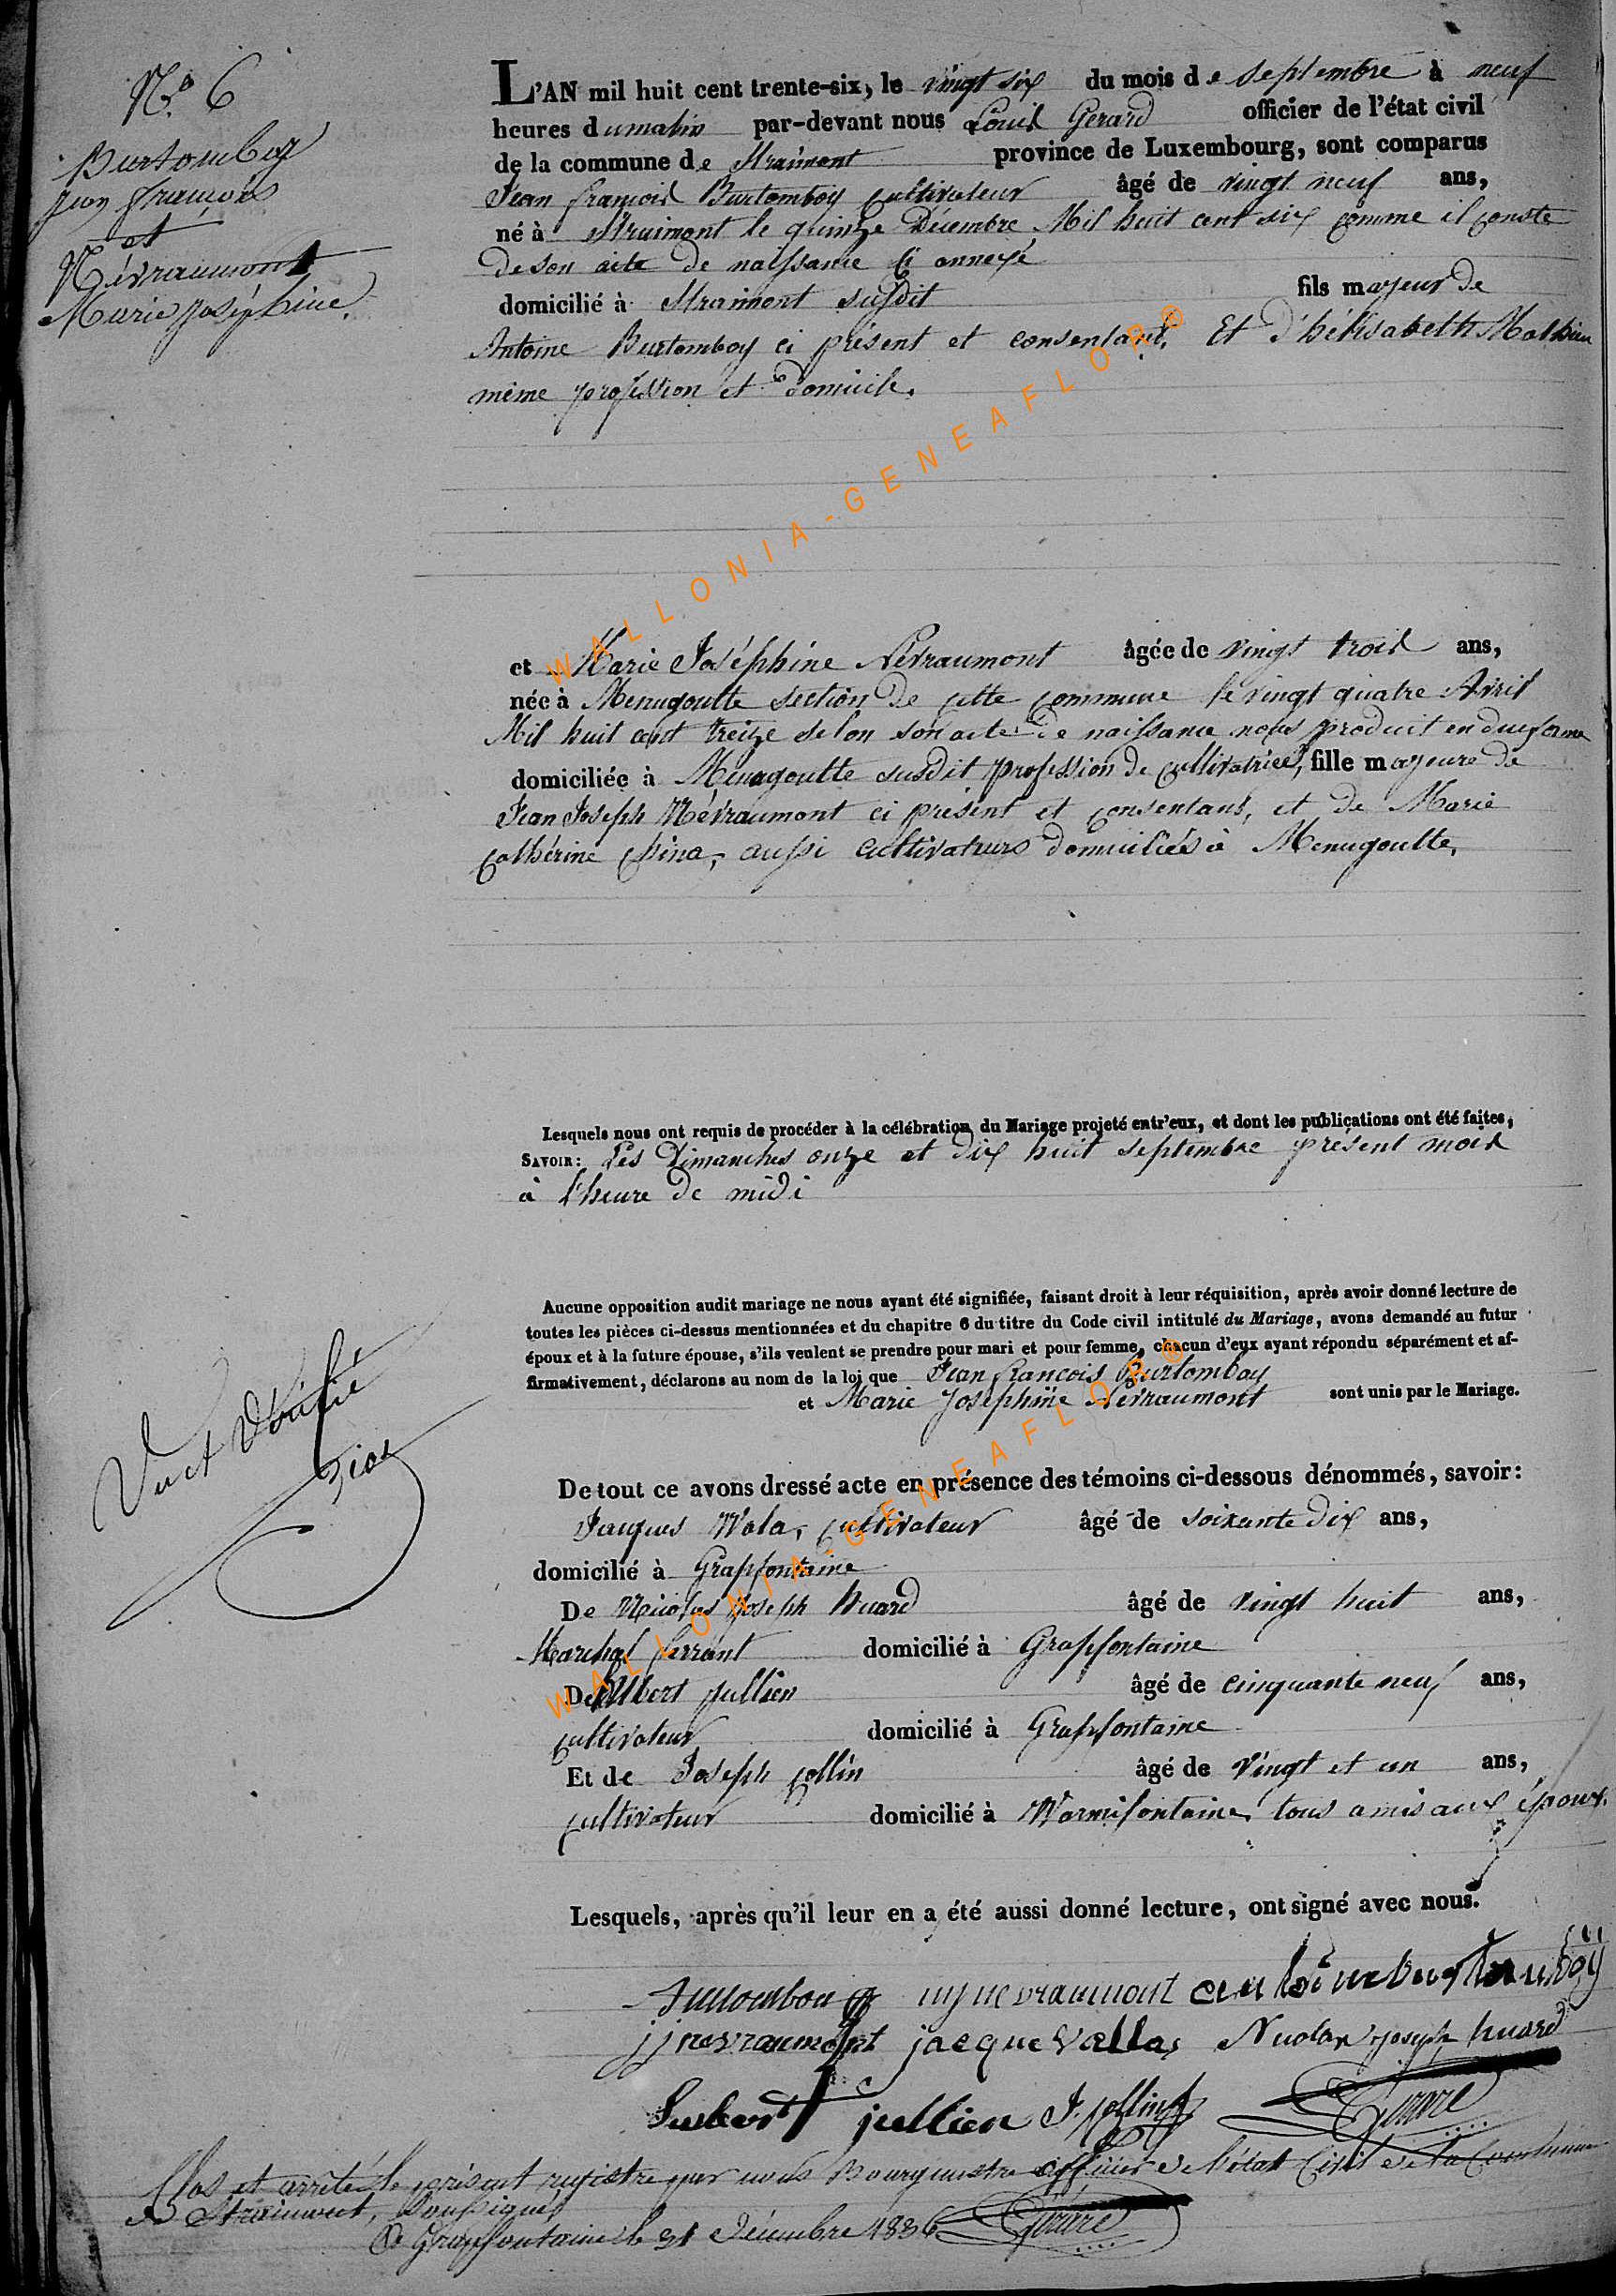 N.° 6
Burtomboy
jean françois
et
Névraumont
Marie joséphine.
L'AN mil huit cent trente-six, le vingt six du mois de septembre à neuf
heures du matin par-devant nous Louis Gerard officier de l'état civil
de la commune de Straimont province de Luxembourg, sont comparus
Jean françois Burtomboy cultivateur âgé de vingt neuf ans,
né à Straimont le quinze Décembre Mil huit cent six comme il conste
de son acte de naissance ci annexé
domicilié à Straimont susdit fils mayeur de
Antoine Burtomboy ci présent et consentant, Et d'hélisabeth Mathieu
même profession et domicile.
et Marie Joséphine Nevraumont âgée de vingt trois ans,
née à Menugoutte section de cette commune le vingt quatre Avril
Mil huit cent treize selon son acte de naissance nous produit en due forme
domiciliée à Menugoutte susdit profession de cultivatrice, fille mayeure de
Jean Joseph Névraumont ci présent et consentant, et de Marie
Cathérine, aussi cultivateurs domiciliés à Menugoutte,
Lesquels nous ont requis de procéder à la célébration du Mariage projeté entr'eux, et dont les publications ont été faites,
SAVOIR: Les Dimanches onze et dix huit septembre présent mois
à l'heure de midi
Aucune opposition audit mariage ne nous ayant été signifiée, faisant droit à leur réquisition, après avoir donné lecture de
toutes les pièces ci-dessus mentionnées et du chapitre 6 du titre du Code civil intitulé du Mariage, avons demandé au futur
époux et à la future épouse, s'ils veulent se prendre pour mari et pour femme, chacun d'eux ayant répondu séparément et af-
firmativement, déclarons au nom de la loi que Jean françois Burtomboy
et Marie Joséphine Nevraumont sont unis par le Mariage.
Vu et Vérifié
De tout ce avons dressé acte en présence des témoins ci-dessous dénommés, savoir:
Jacques Wala, cultivateur âgé de soixante dix ans,
domicilié à Grapfontaine
De Nicolas Joseph huard âgé de vingt huit ans,
Marechal ferrant domicilié à Grapfontaine
De hubert jullien âgé de cinquante neuf ans,
cultivateur domicilié à Grapfontaine
Et de Joseph collin âgé de vingt et un ans,
cultivateur domicilié à Warmifontaine, tous amis aux époux.
Lesquels, après qu'il leur en a été aussi donné lecture, ont signé avec nous.
mj nevraumont antoine burtomboÿ
jj nevraumont jacque vallas Nicolas joseph huard
hubert jullien J. collin Gérard
Clos et arrêté le présent registre par nous Bourgmestre officier de l'état Civil de la Commune
de Straimont, soussigné
A Grapfontaine le 31 Décembre 1836 Gérard
WALLONIA-GENEAFLOR®
WALLONIA-GENEAFLOR®